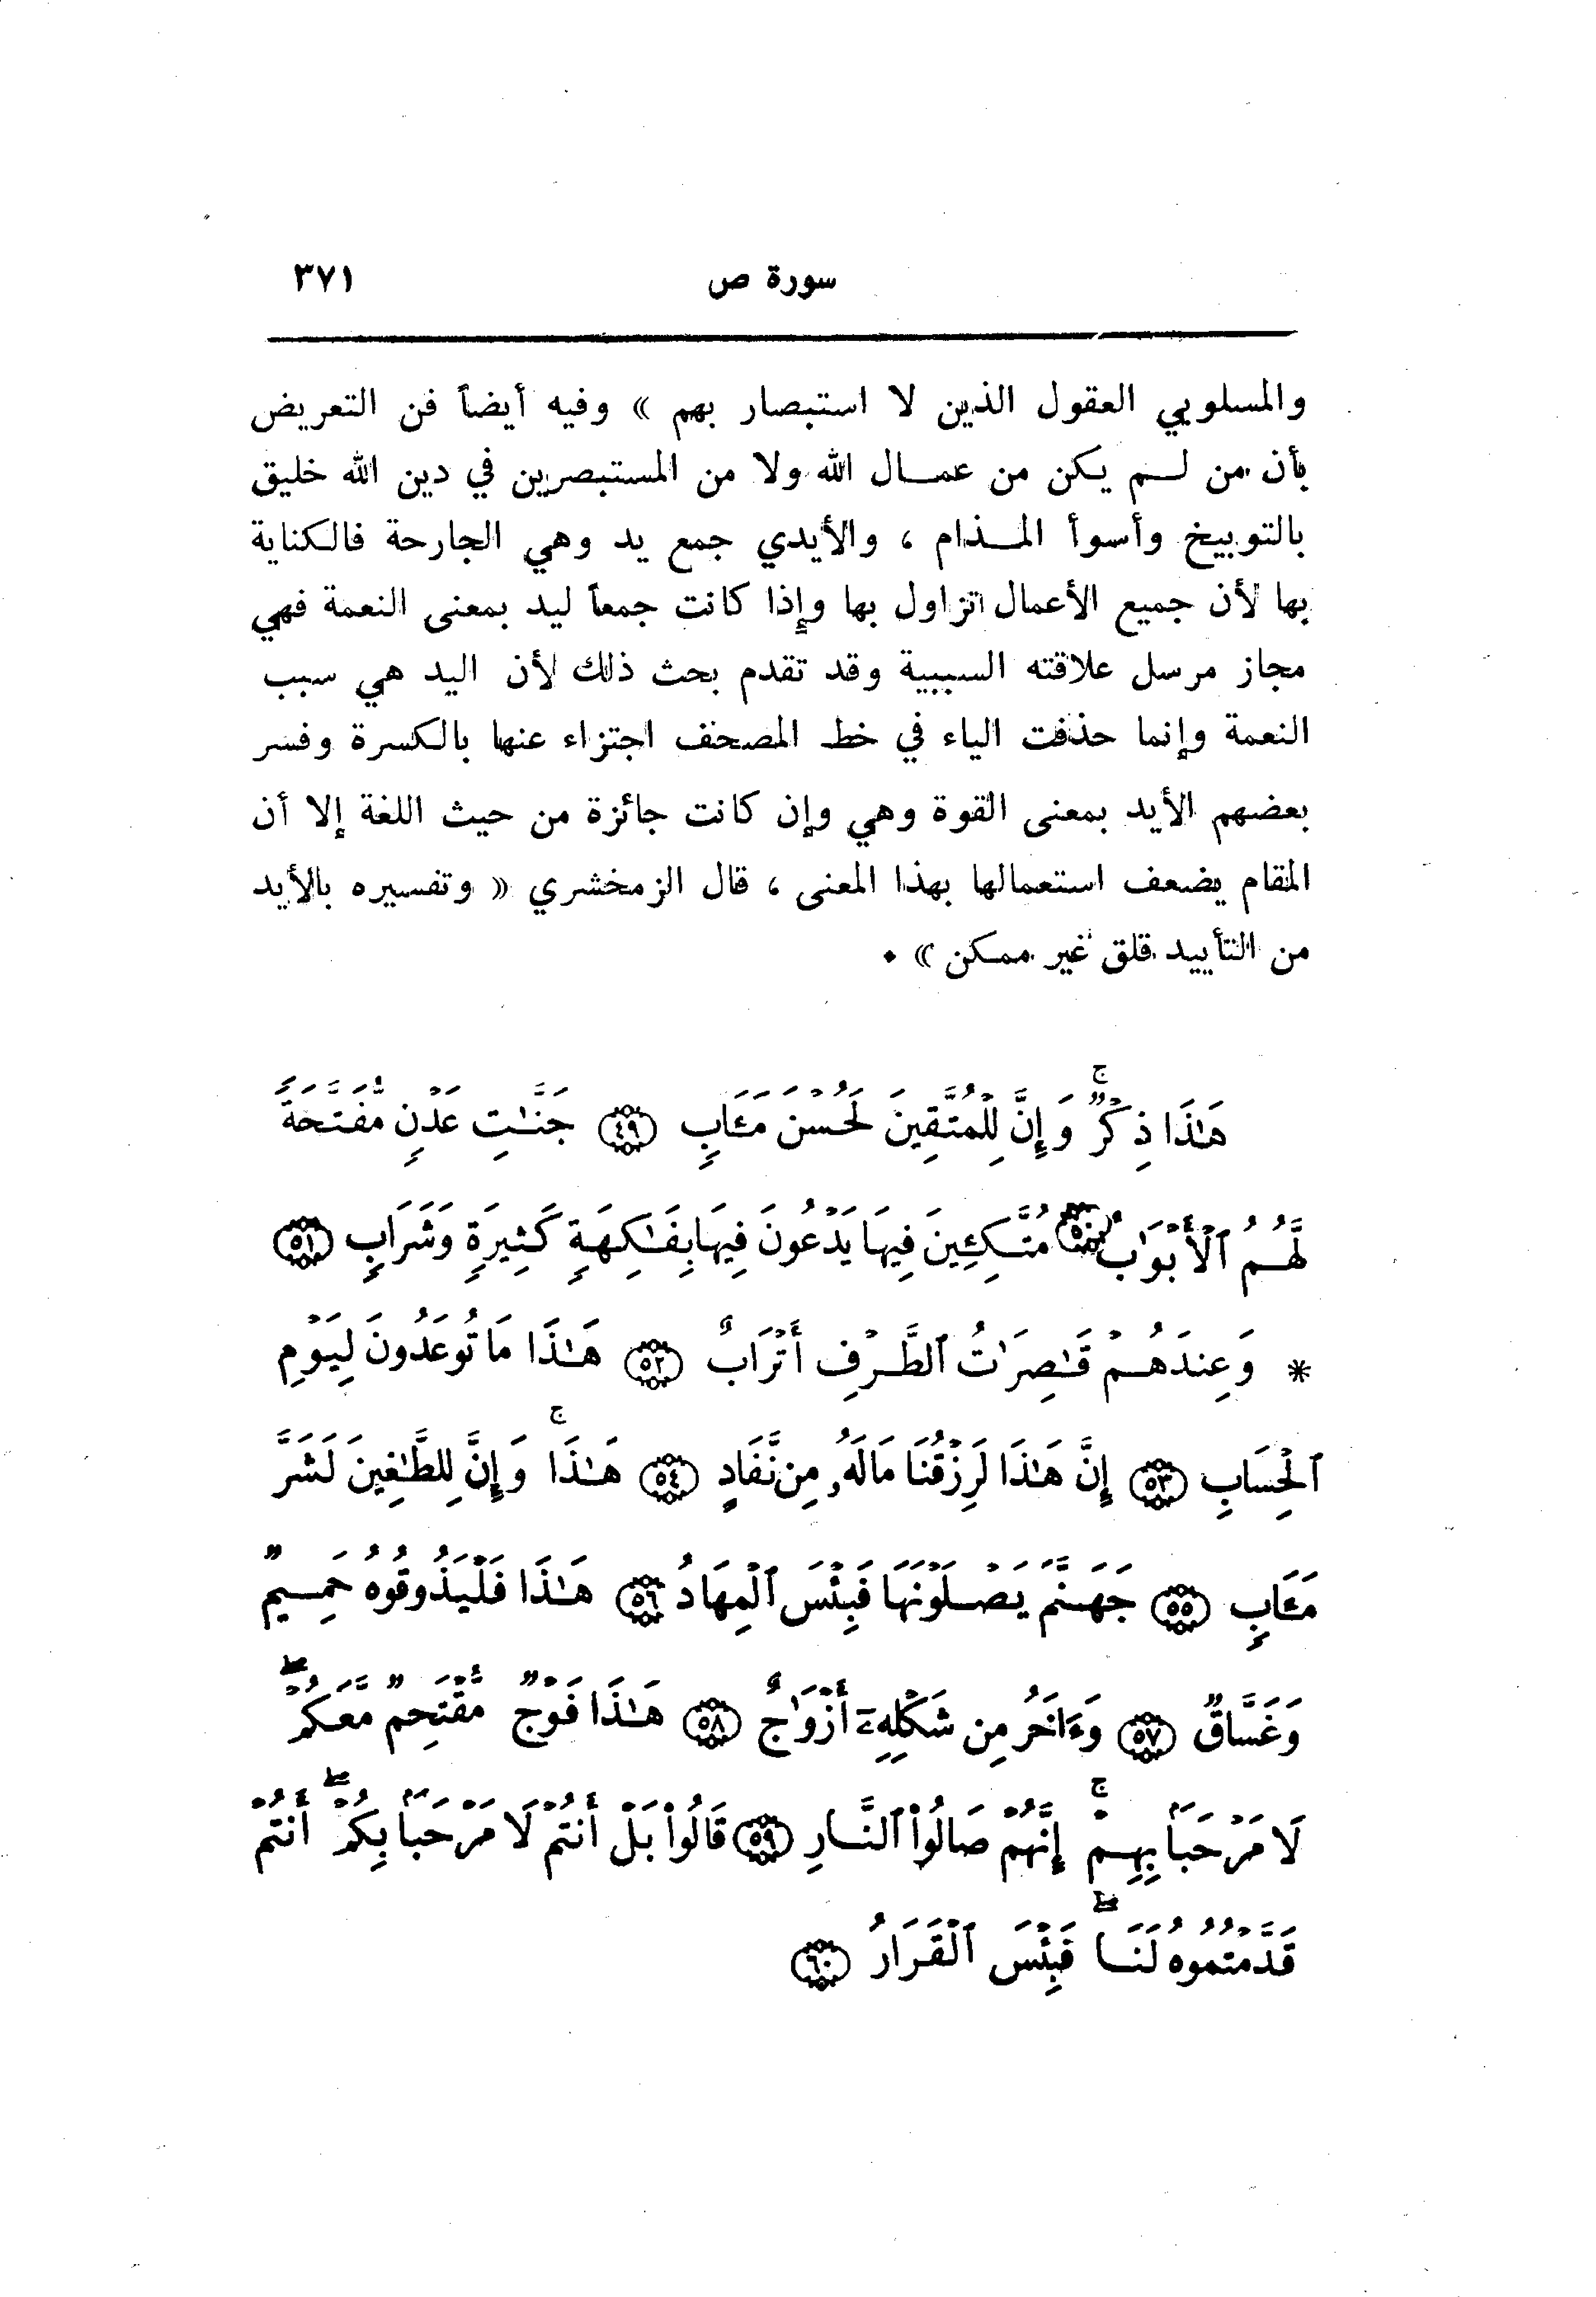 سورة ص ٣٧١
والمسلوبي العقول الذين لا استبصار بهم » وفيه أيضاً فن التعريض
بأن من لـم يكن من عمـال الله ولا من المستبصرين في دين الله خليق
بالتوبيخ وأسوأ المـذام ، والأيدي جمع يد وهي الجارحة فالكناية
بها لأن جميع الأعمال تزاول بها وإذا كانت جمعاً ليد بمعنى النعمة فهي
مجاز مرسل علاقته السببية وقد تقدم بحث ذلك لأن اليد هي سبب
النعمة وإنما حذفت الياء في خط المصحف اجتزاء عنها بالكسرة وفسر
بعضهم الأيد بمعنى القوة وهي وإن كانت جائزة من حيث اللغة إلا أن
المقام يضعف استعمالها بهذا المعنى ، قال الزمخشري « وتفسيره بالأيد
من التأييد قلق غير ممكن » .
هَـٰذَا ذِكْرٌۚ وَإِنَّ لِلْمُتَّقِينَ لَحُسْنَ مَـَٔابٍ ﴿٤٩﴾ جَنَّـٰتِ عَدْنٍ مُّفَتَّحَةً
لَّهُمُ ٱلْأَبْوَٰبُ ﴿٥٠﴾ مُتَّكِـِٔينَ فِيهَا يَدْعُونَ فِيهَا بِفَـٰكِهَةٍ كَثِيرَةٍ وَشَرَابٍ ﴿٥١﴾
* وَعِندَهُمْ قَـٰصِرَٰتُ ٱلطَّرْفِ أَتْرَابٌ ﴿٥٢﴾ هَـٰذَا مَا تُوعَدُونَ لِيَوْمِ
ٱلْحِسَابِ ﴿٥٣﴾ إِنَّ هَـٰذَا لَرِزْقُنَا مَا لَهُۥ مِن نَّفَادٍ ﴿٥٤﴾ هَـٰذَاۚ وَإِنَّ لِلطَّـٰغِينَ لَشَرَّ
مَـَٔابٍ ﴿٥٥﴾ جَهَنَّمَ يَصْلَوْنَهَا فَبِئْسَ ٱلْمِهَادُ ﴿٥٦﴾ هَـٰذَا فَلْيَذُوقُوهُ حَمِيمٌ
وَغَسَّاقٌ ﴿٥٧﴾ وَءَاخَرُ مِن شَكْلِهِۦٓ أَزْوَٰجٌ ﴿٥٨﴾ هَـٰذَا فَوْجٌ مُّقْتَحِمٌ مَّعَكُمْۖ
لَا مَرْحَبًۢا بِهِمْۚ إِنَّهُمْ صَالُوا۟ ٱلنَّارِ ﴿٥٩﴾ قَالُوا۟ بَلْ أَنتُمْ لَا مَرْحَبًۢا بِكُمْۖ أَنتُمْ
قَدَّمْتُمُوهُ لَنَاۖ فَبِئْسَ ٱلْقَرَارُ ﴿٦٠﴾